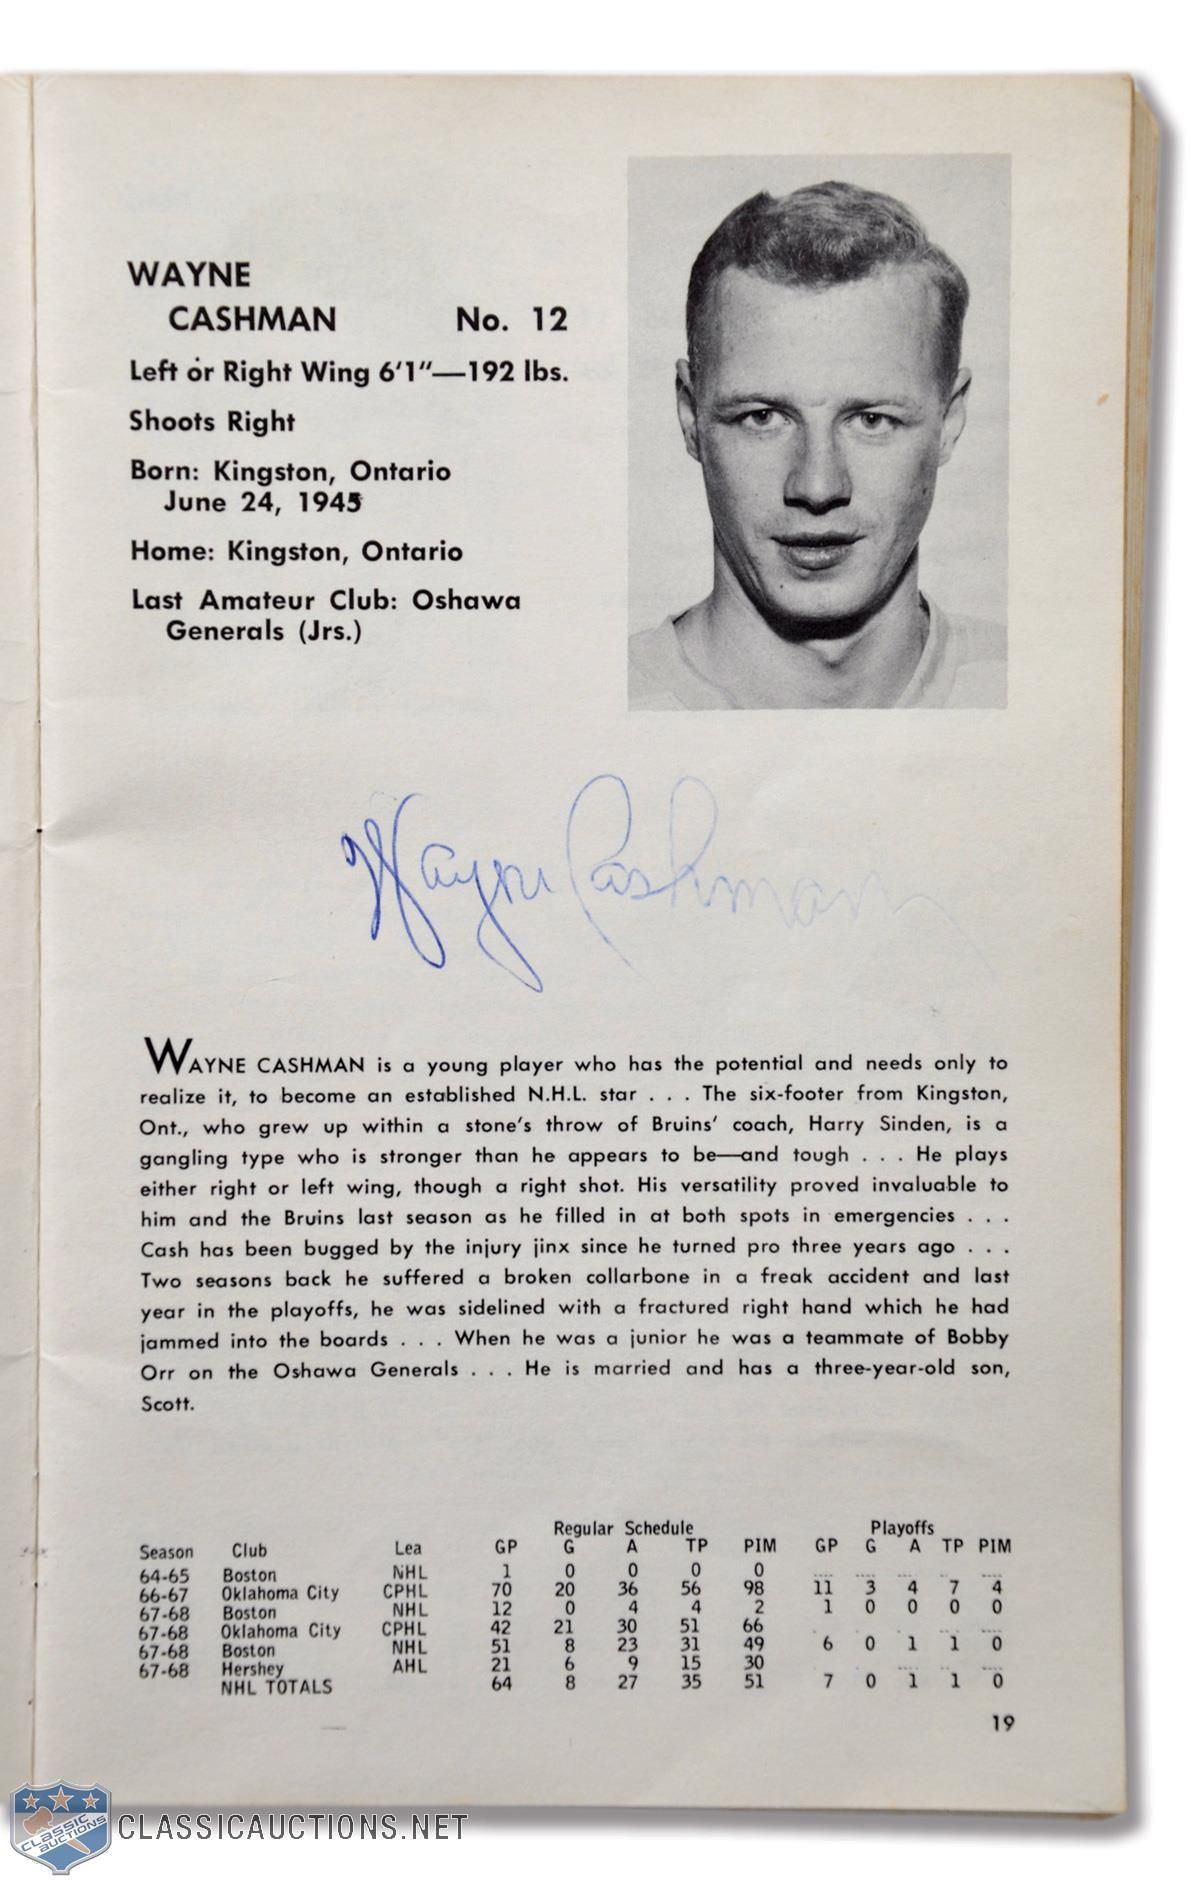 WAYNE
CASHMAN No. 12
Left or Right Wing 6'1"—192 lbs.
Shoots Right
Born: Kingston, Ontario
June 24, 1945
Home: Kingston, Ontario
Last Amateur Club: Oshawa
Generals (Jrs.)
Wayne Cashman
WAYNE CASHMAN is a young player who has the potential and needs only to
realize it, to become an established N.H.L. star . . . The six-footer from Kingston,
Ont., who grew up within a stone's throw of Bruins' coach, Harry Sinden, is a
gangling type who is stronger than he appears to be—and tough . . . He plays
either right or left wing, though a right shot. His versatility proved invaluable to
him and the Bruins last season as he filled in at both spots in emergencies . . .
Cash has been bugged by the injury jinx since he turned pro three years ago . . .
Two seasons back he suffered a broken collarbone in a freak accident and last
year in the playoffs, he was sidelined with a fractured right hand which he had
jammed into the boards . . . When he was a junior he was a teammate of Bobby
Orr on the Oshawa Generals . . . He is married and has a three-year-old son,
Scott.
Regular Schedule Playoffs
Season Club Lea GP G A TP PIM GP G A TP PIM
64-65 Boston NHL 1 0 0 0 0 .... .... .... .... ....
66-67 Oklahoma City CPHL 70 20 36 56 98 11 3 4 7 4
67-68 Boston NHL 12 0 4 4 2 1 0 0 0 0
67-68 Oklahoma City CPHL 42 21 30 51 66 .... .... .... .... ....
67-68 Boston NHL 51 8 23 31 49 6 0 1 1 0
67-68 Hershey AHL 21 6 9 15 30 .... .... .... .... ....
NHL TOTALS 64 8 27 35 51 7 0 1 1 0
19
CLASSIC
AUCTIONS
CLASSICAUCTIONS.NET